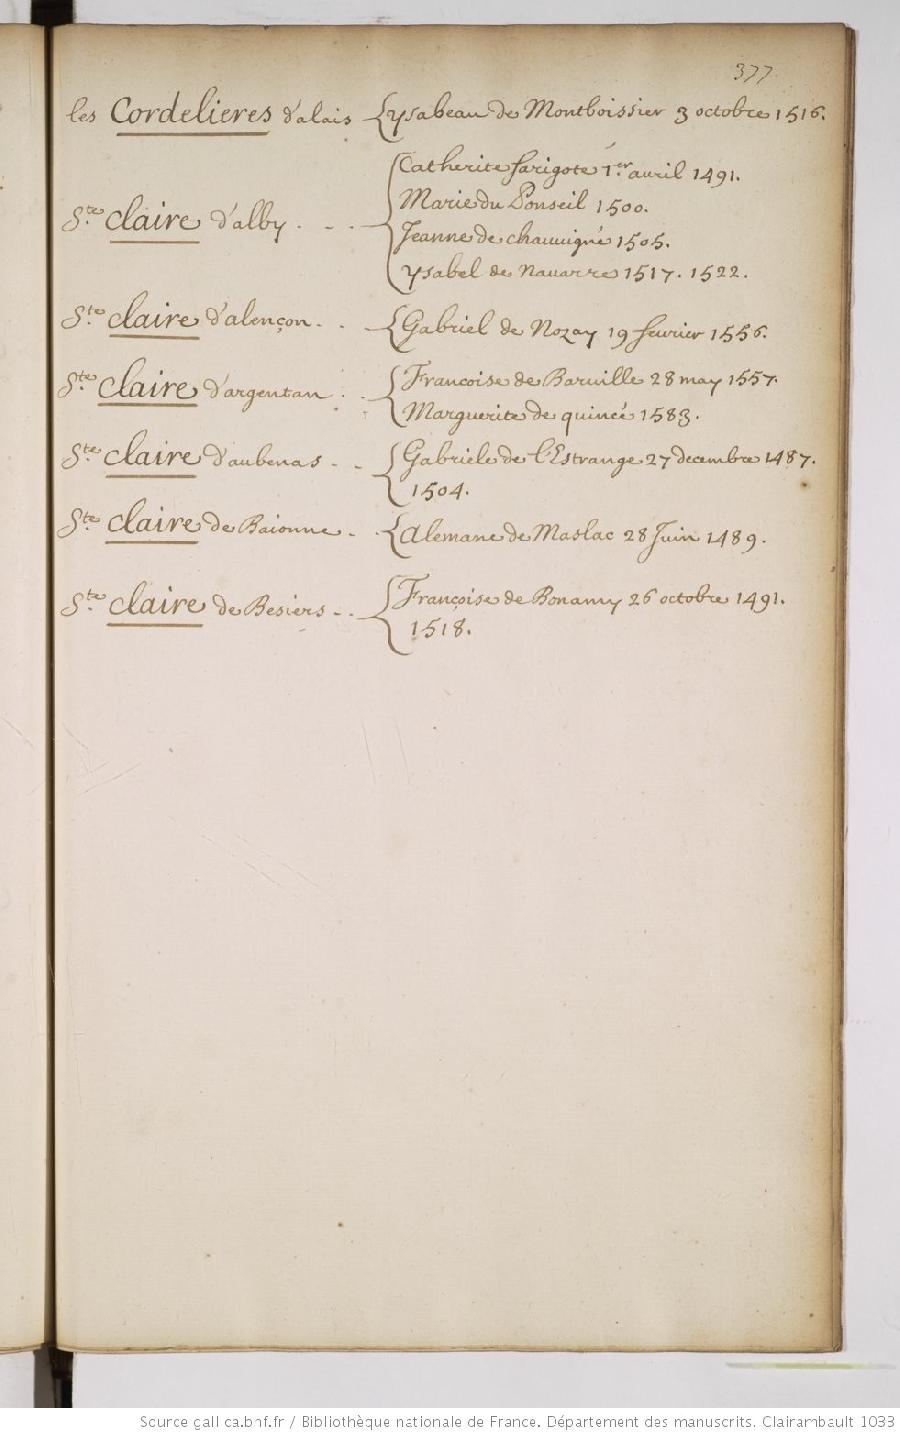 377
les Cordelieres d'alais { ysabeau de Montboissier 3 octobre 1516.
Catherite farigote 1.er auril 1491.
Marie du Ponseil 1500.
S.te claire d'alby . - . { Jeanne de chauuigné 1505.
ysabel de Nauarre 1517. 1522.
S.te claire d'alençon . . { Gabriel de Nozay 19 feurier 1556.
S.te claire d'argentan . . { Francoise de Baruille 28 may 1557.
Marguerite de quincé 1583.
S.te claire d'aubenas . . { Gabriele de l'Estrange 27 decembre 1487.
1504.
S.te claire de Baionne . . { Alemane de Maslac 28 Juin 1489.
S.te claire de Besiers . . { Françoise de Bonamy 26 octobre 1491.
1518.
Source gallica.bnf.fr / Bibliothèque nationale de France. Département des manuscrits. Clairambault 1033